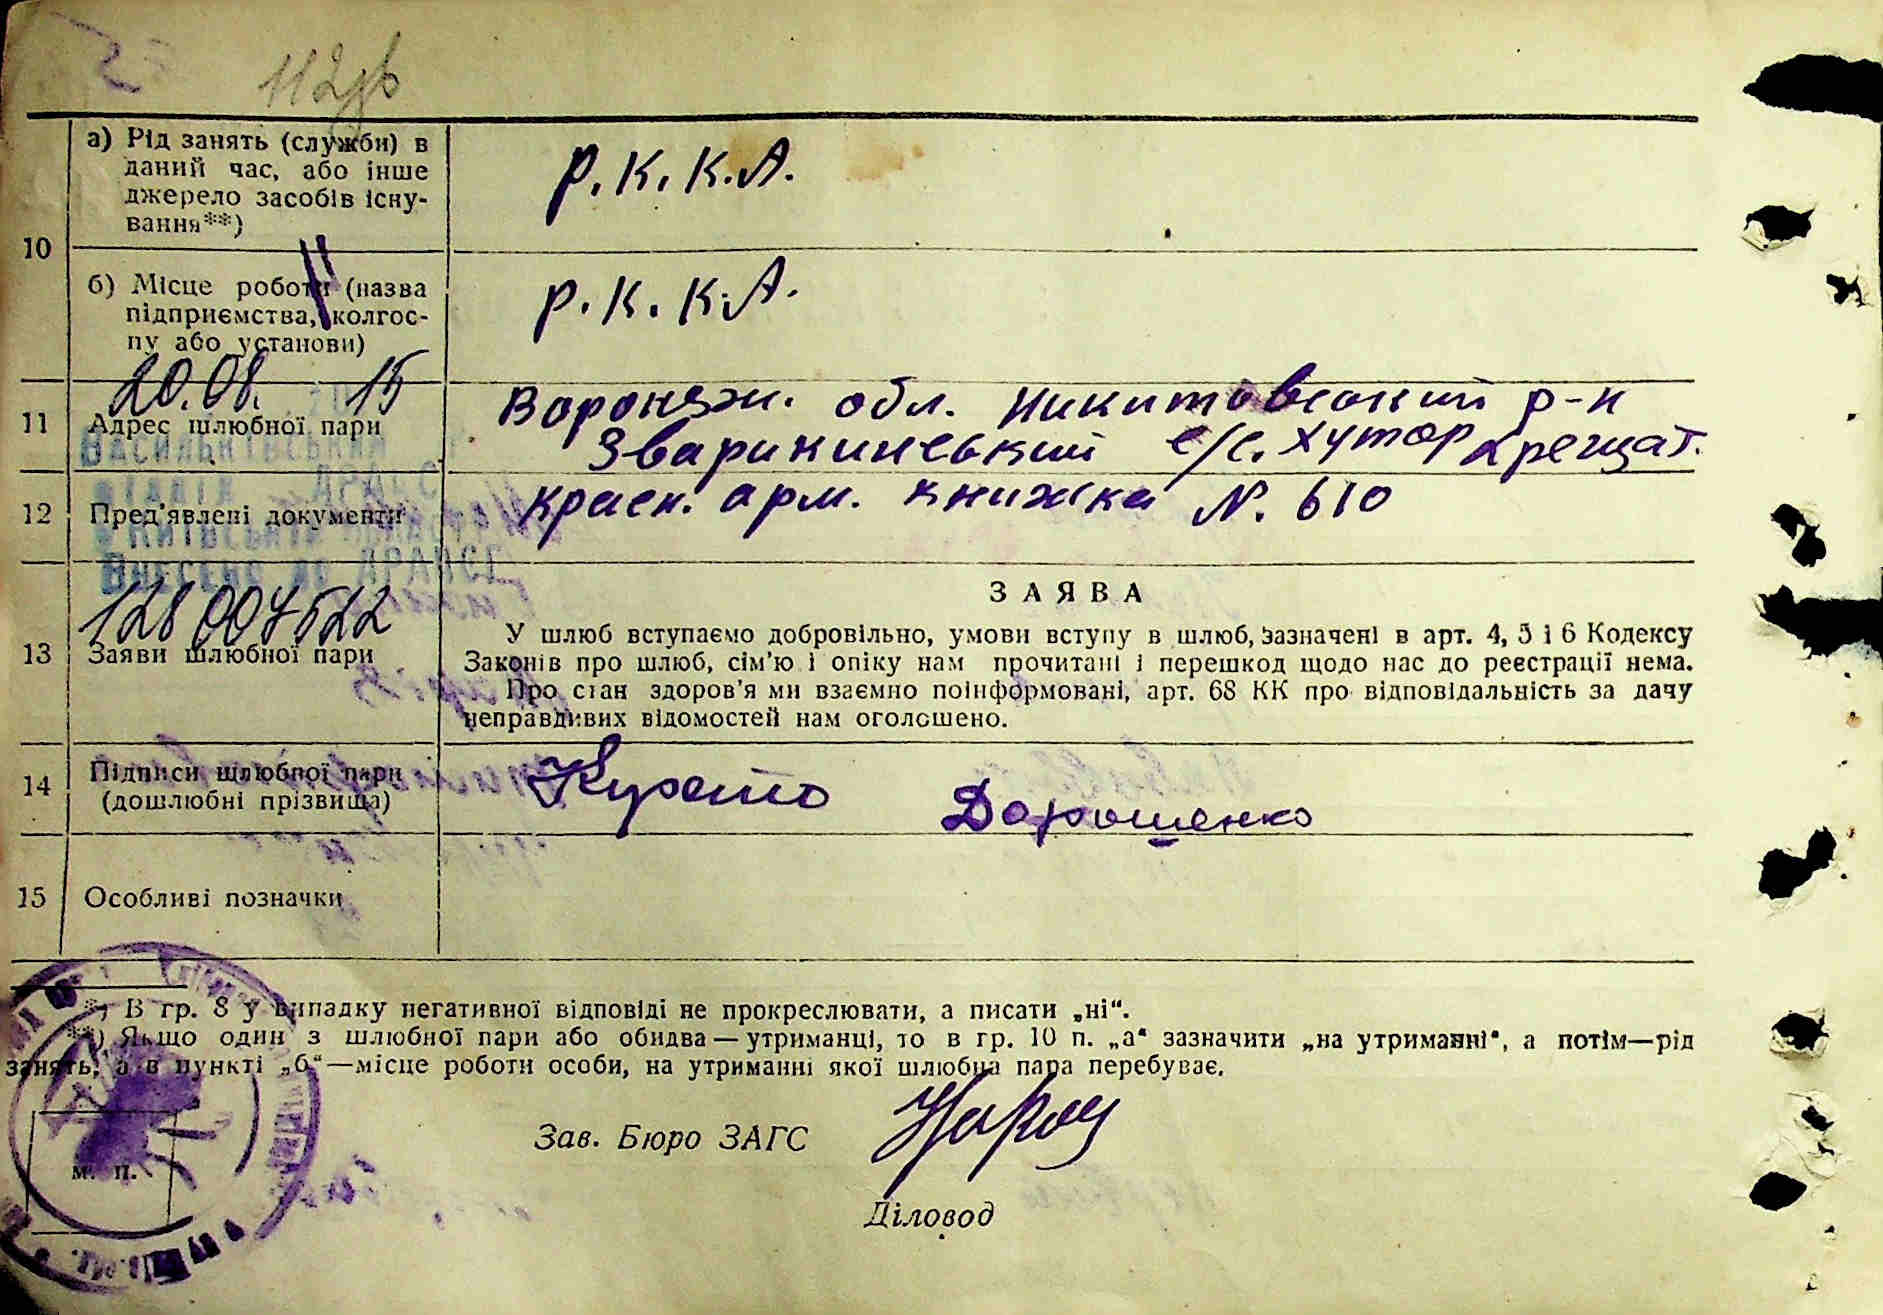 112зв
10
а) Рід занять (служби) в
даний час, або інше
джерело засобів існу-
вання**)
Р.К.К.А.
б) Місце роботи (назва
підприємства, колгос-
пу або установи)
Р.К.К.А.
20.08. 15
11
Адрес шлюбної пари
Воронеж. обл. Никитовский р-н
Зварикинський с/с. хутор Крещат.
Васильківський
12
Пред'явлені документи
Красн. арм. книжка N. 610
Внесено до ДРАЦСГ
128 007522
13
Заяви шлюбної пари
ЗАЯВА
У шлюб вступаємо добровільно, умови вступу в шлюб, зазначені в арт. 4, 5 і 6 Кодексу
Законів про шлюб, сім'ю і опіку нам прочитані і перешкод щодо нас до реєстрації нема.
Про стан здоров'я ми взаємно поінформовані, арт. 68 КК про відповідальність за дачу
неправдивих відомостей нам оголошено.
14
Підписи шлюбної пари
(дошлюбні прізвища)
Дорошенко
15
Особливі позначки
*) В гр. 8 у випадку негативної відповіді не прокреслювати, а писати „ні“.
**) Якщо один з шлюбної пари або обидва—утриманці, то в гр. 10 п. „а“ зазначити „на утриманні“, а потім—рід
занять, а в пункті „б“—місце роботи особи, на утриманні якої шлюбна пара перебуває.
Зав. Бюро ЗАГС
М. П.
Діловод